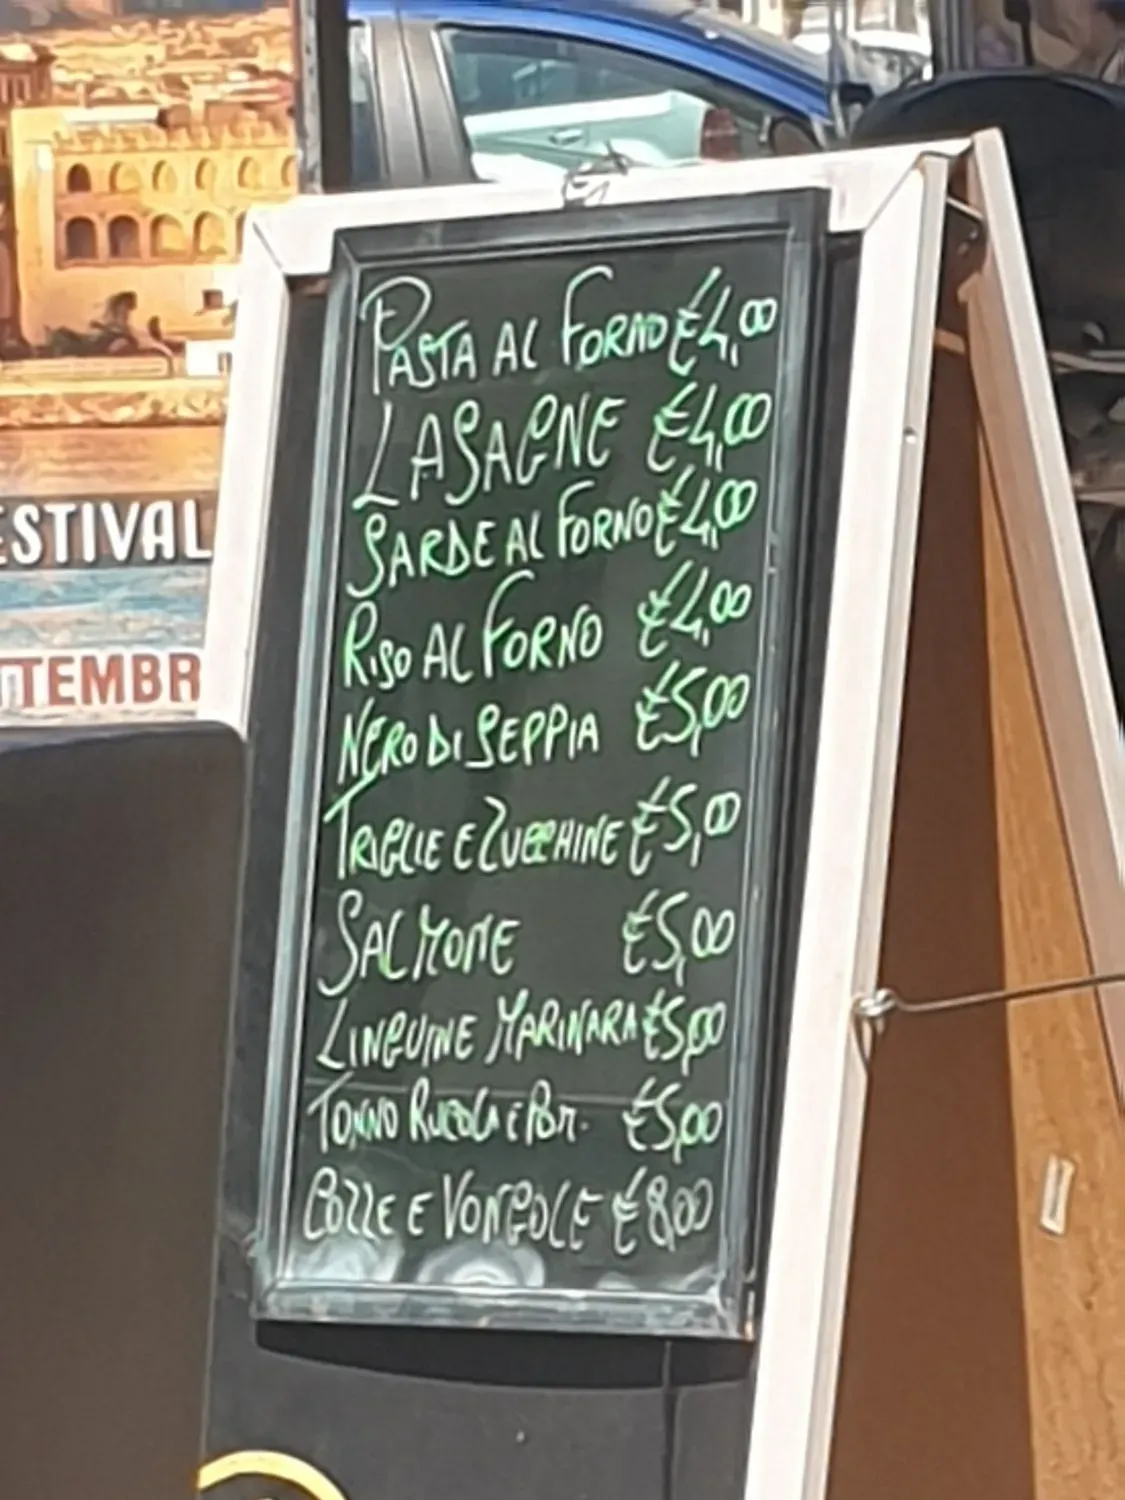 ESTIVAL
TTEMBR
PASTA AL FORNO €4,00
LASAGNE €4,00
SARDE AL FORNO €4,00
RISO AL FORNO €4,00
NERO DI SEPPIA €5,00
TRIGLIE E ZUCCHINE €5,00
SALMONE €5,00
LINGUINE MARINARA €5,00
TONNO RUCOLA E POM. €5,00
COZZE E VONGOLE €8,00